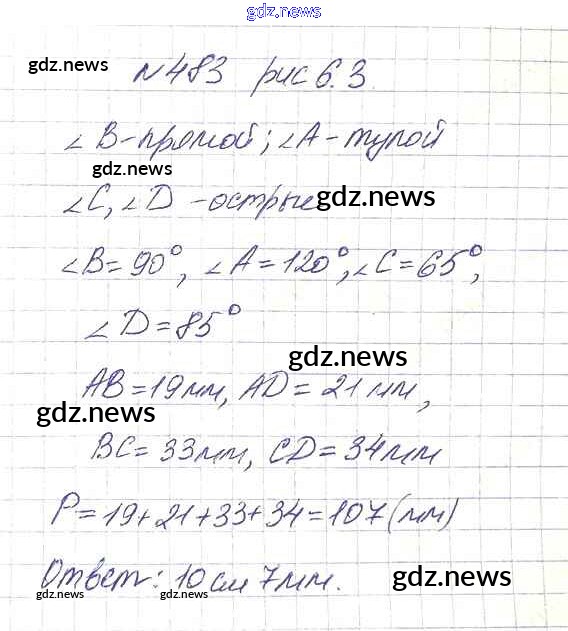 gdz.news
№483 рис 6.3
gdz.news
∠B-прямой; ∠A-тупой
gdz.news
∠C, ∠D -острые
gdz.news
∠B=90°, ∠A=120°, ∠C=65°,
∠D=85°
gdz.news
AB=19мм, AD=21мм,
gdz.news
BC=33мм, CD=34мм
P=19+21+33+34=107(мм)
Ответ: 10см 7мм.
gdz.news
gdz.news gdz.news